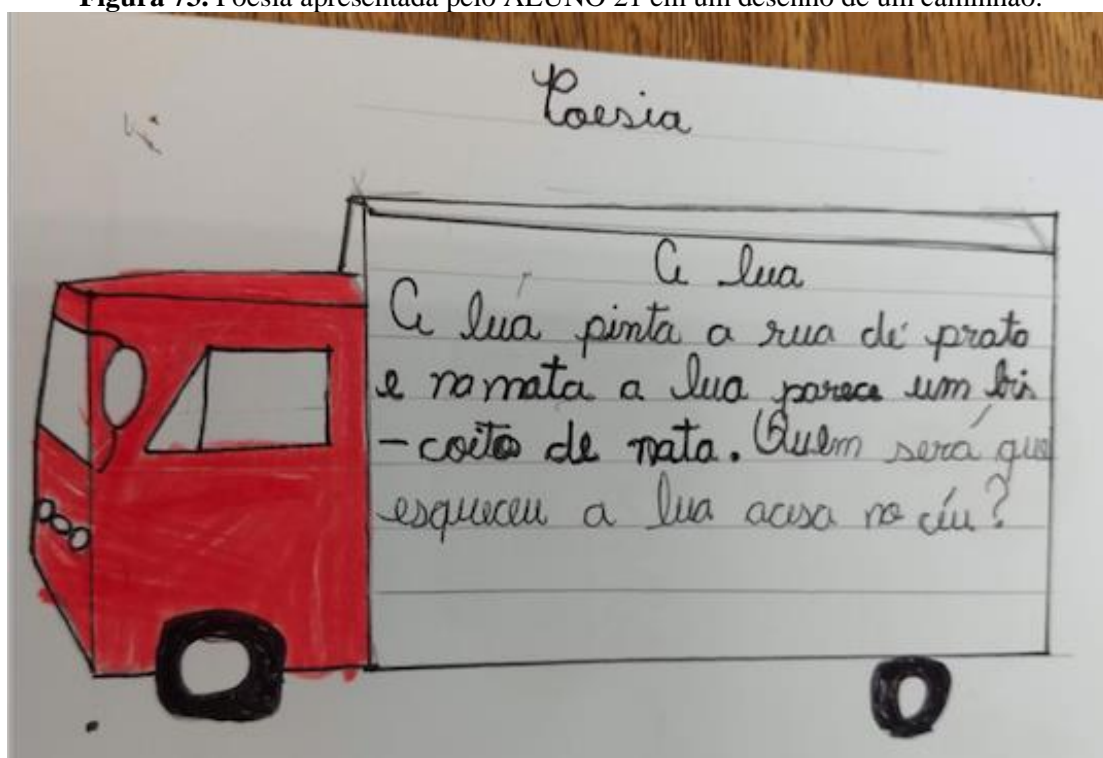 Figura 73. Poesia apresentada pelo ALUNO 21 em um desenho de um caminhão.
Poesia
A lua
A lua pinta a rua de prato
e na mata a lua parece um bis
-coito de nata. Quem será que
esqueceu a lua acesa no céu?